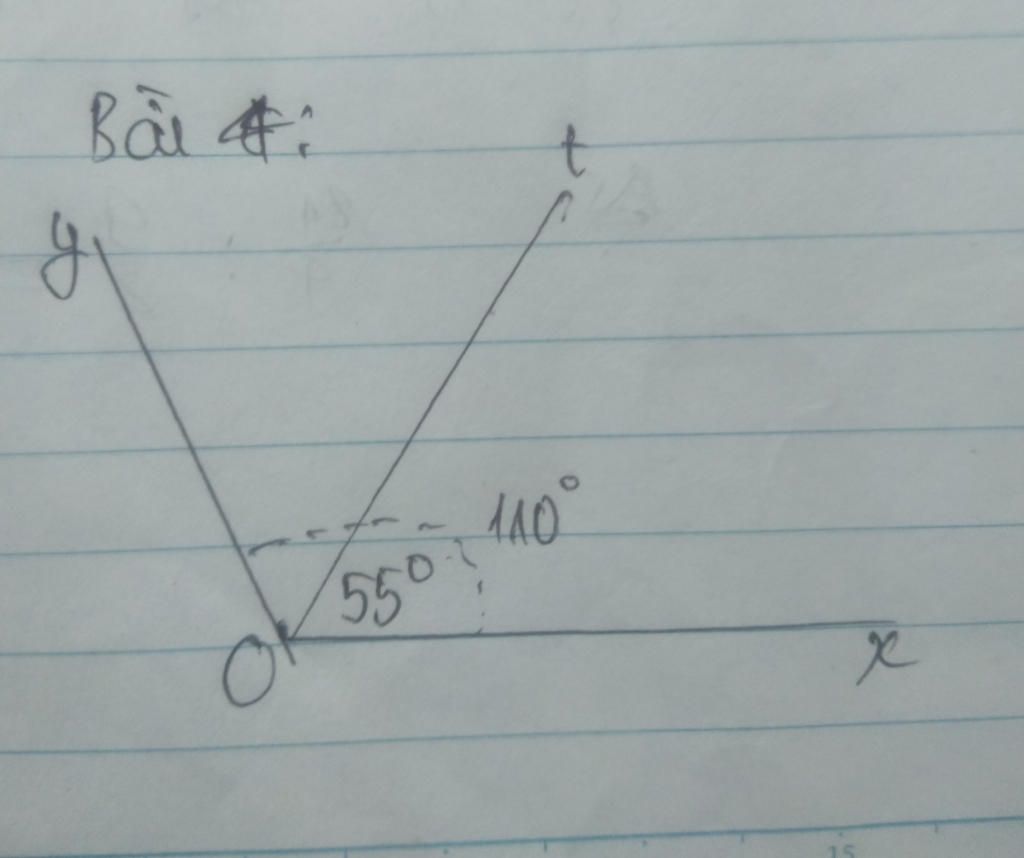 Bài 4:
t
y
110°
55°
O
x
15